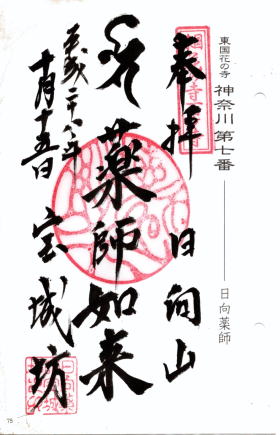 東国花の寺
神奈川 第七番
日向薬師
奉拝 日向山
薬師如来
宝城坊
平成二十八年
十月十五日
75